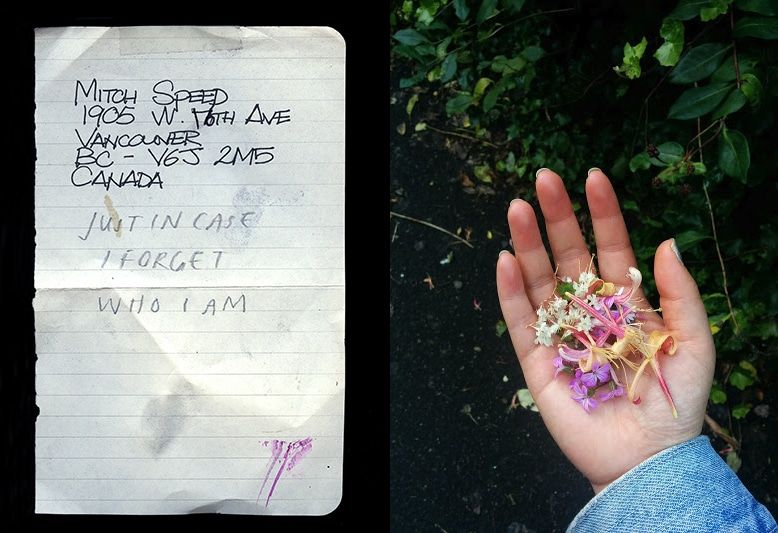 MITCH SPEED
1905 W. 16TH AVE
VANCOUVER
BC - V6J 2M5
CANADA
JUST IN CASE
I FORGET
WHO I AM